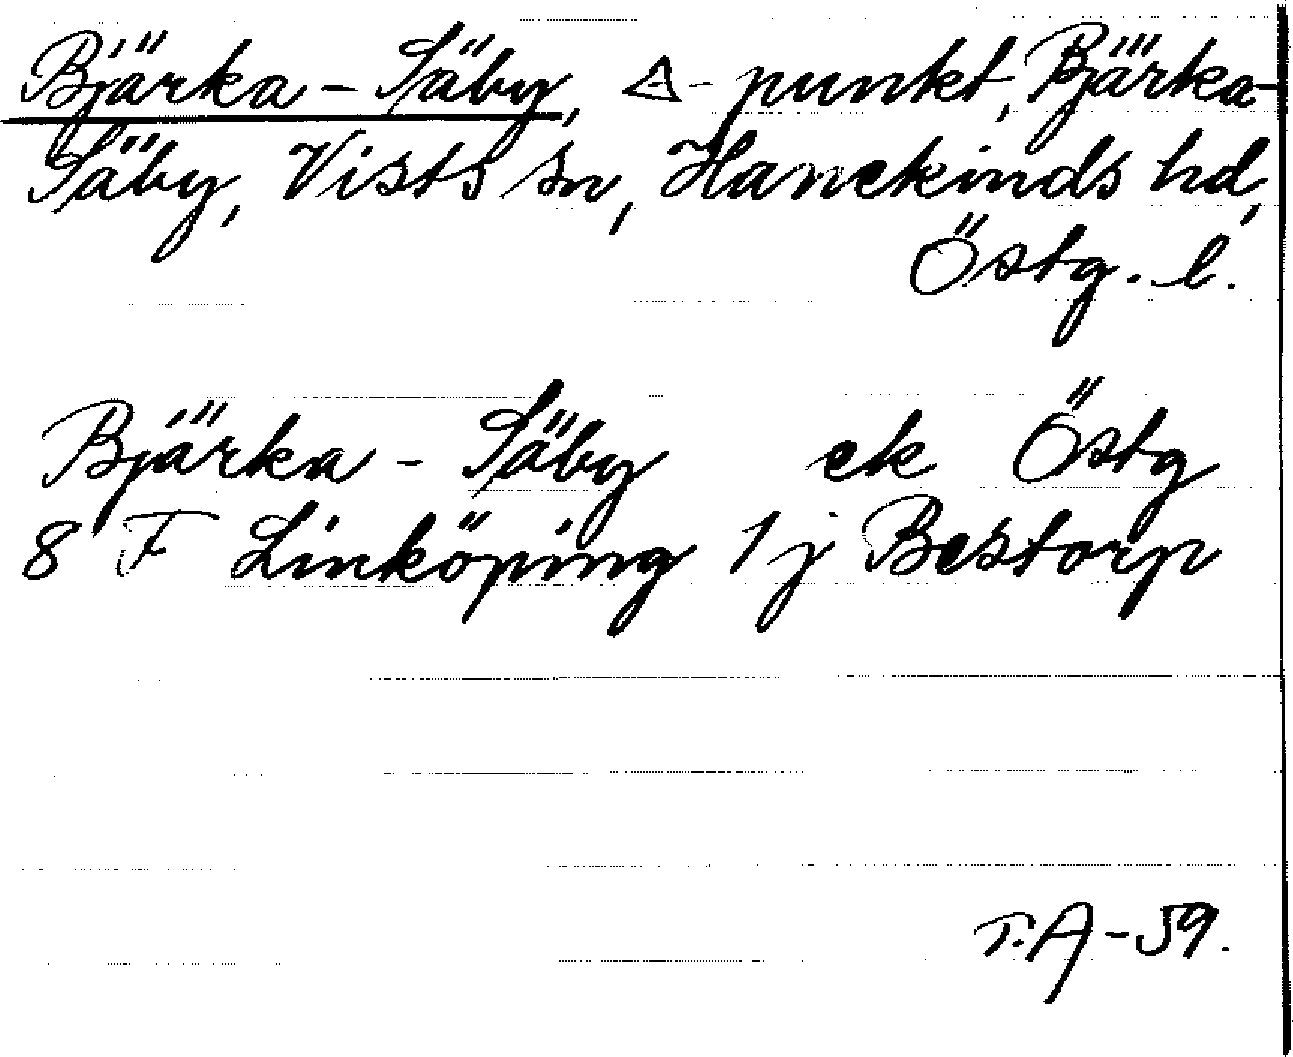 Bjärka-Säby, △-punkt, Bjärka-
Säby, Vists sn, Hanekinds hd,
Östg. l.
Bjärka-Säby ek Östg
8 F Linköping 1 j Bestorp
T.A-59.